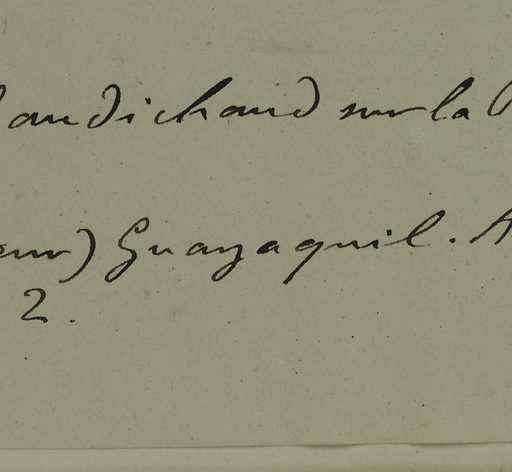 audichaud sur la
eur) Guayaquil. A
2.